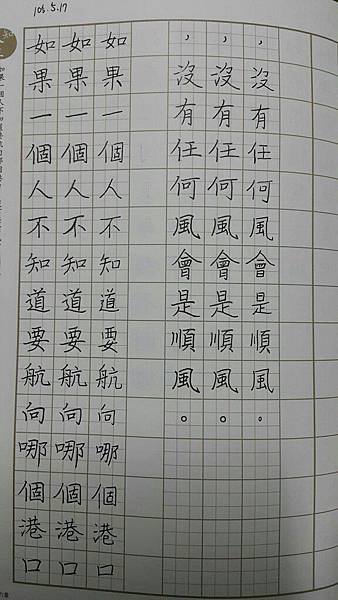 如果一個人不知道要航向哪個港口
如果一個人不知道要航向哪個港口
如果一個人不知道要航向哪個港口
，沒有任何風會是順風。
，沒有任何風會是順風。
，沒有任何風會是順風。